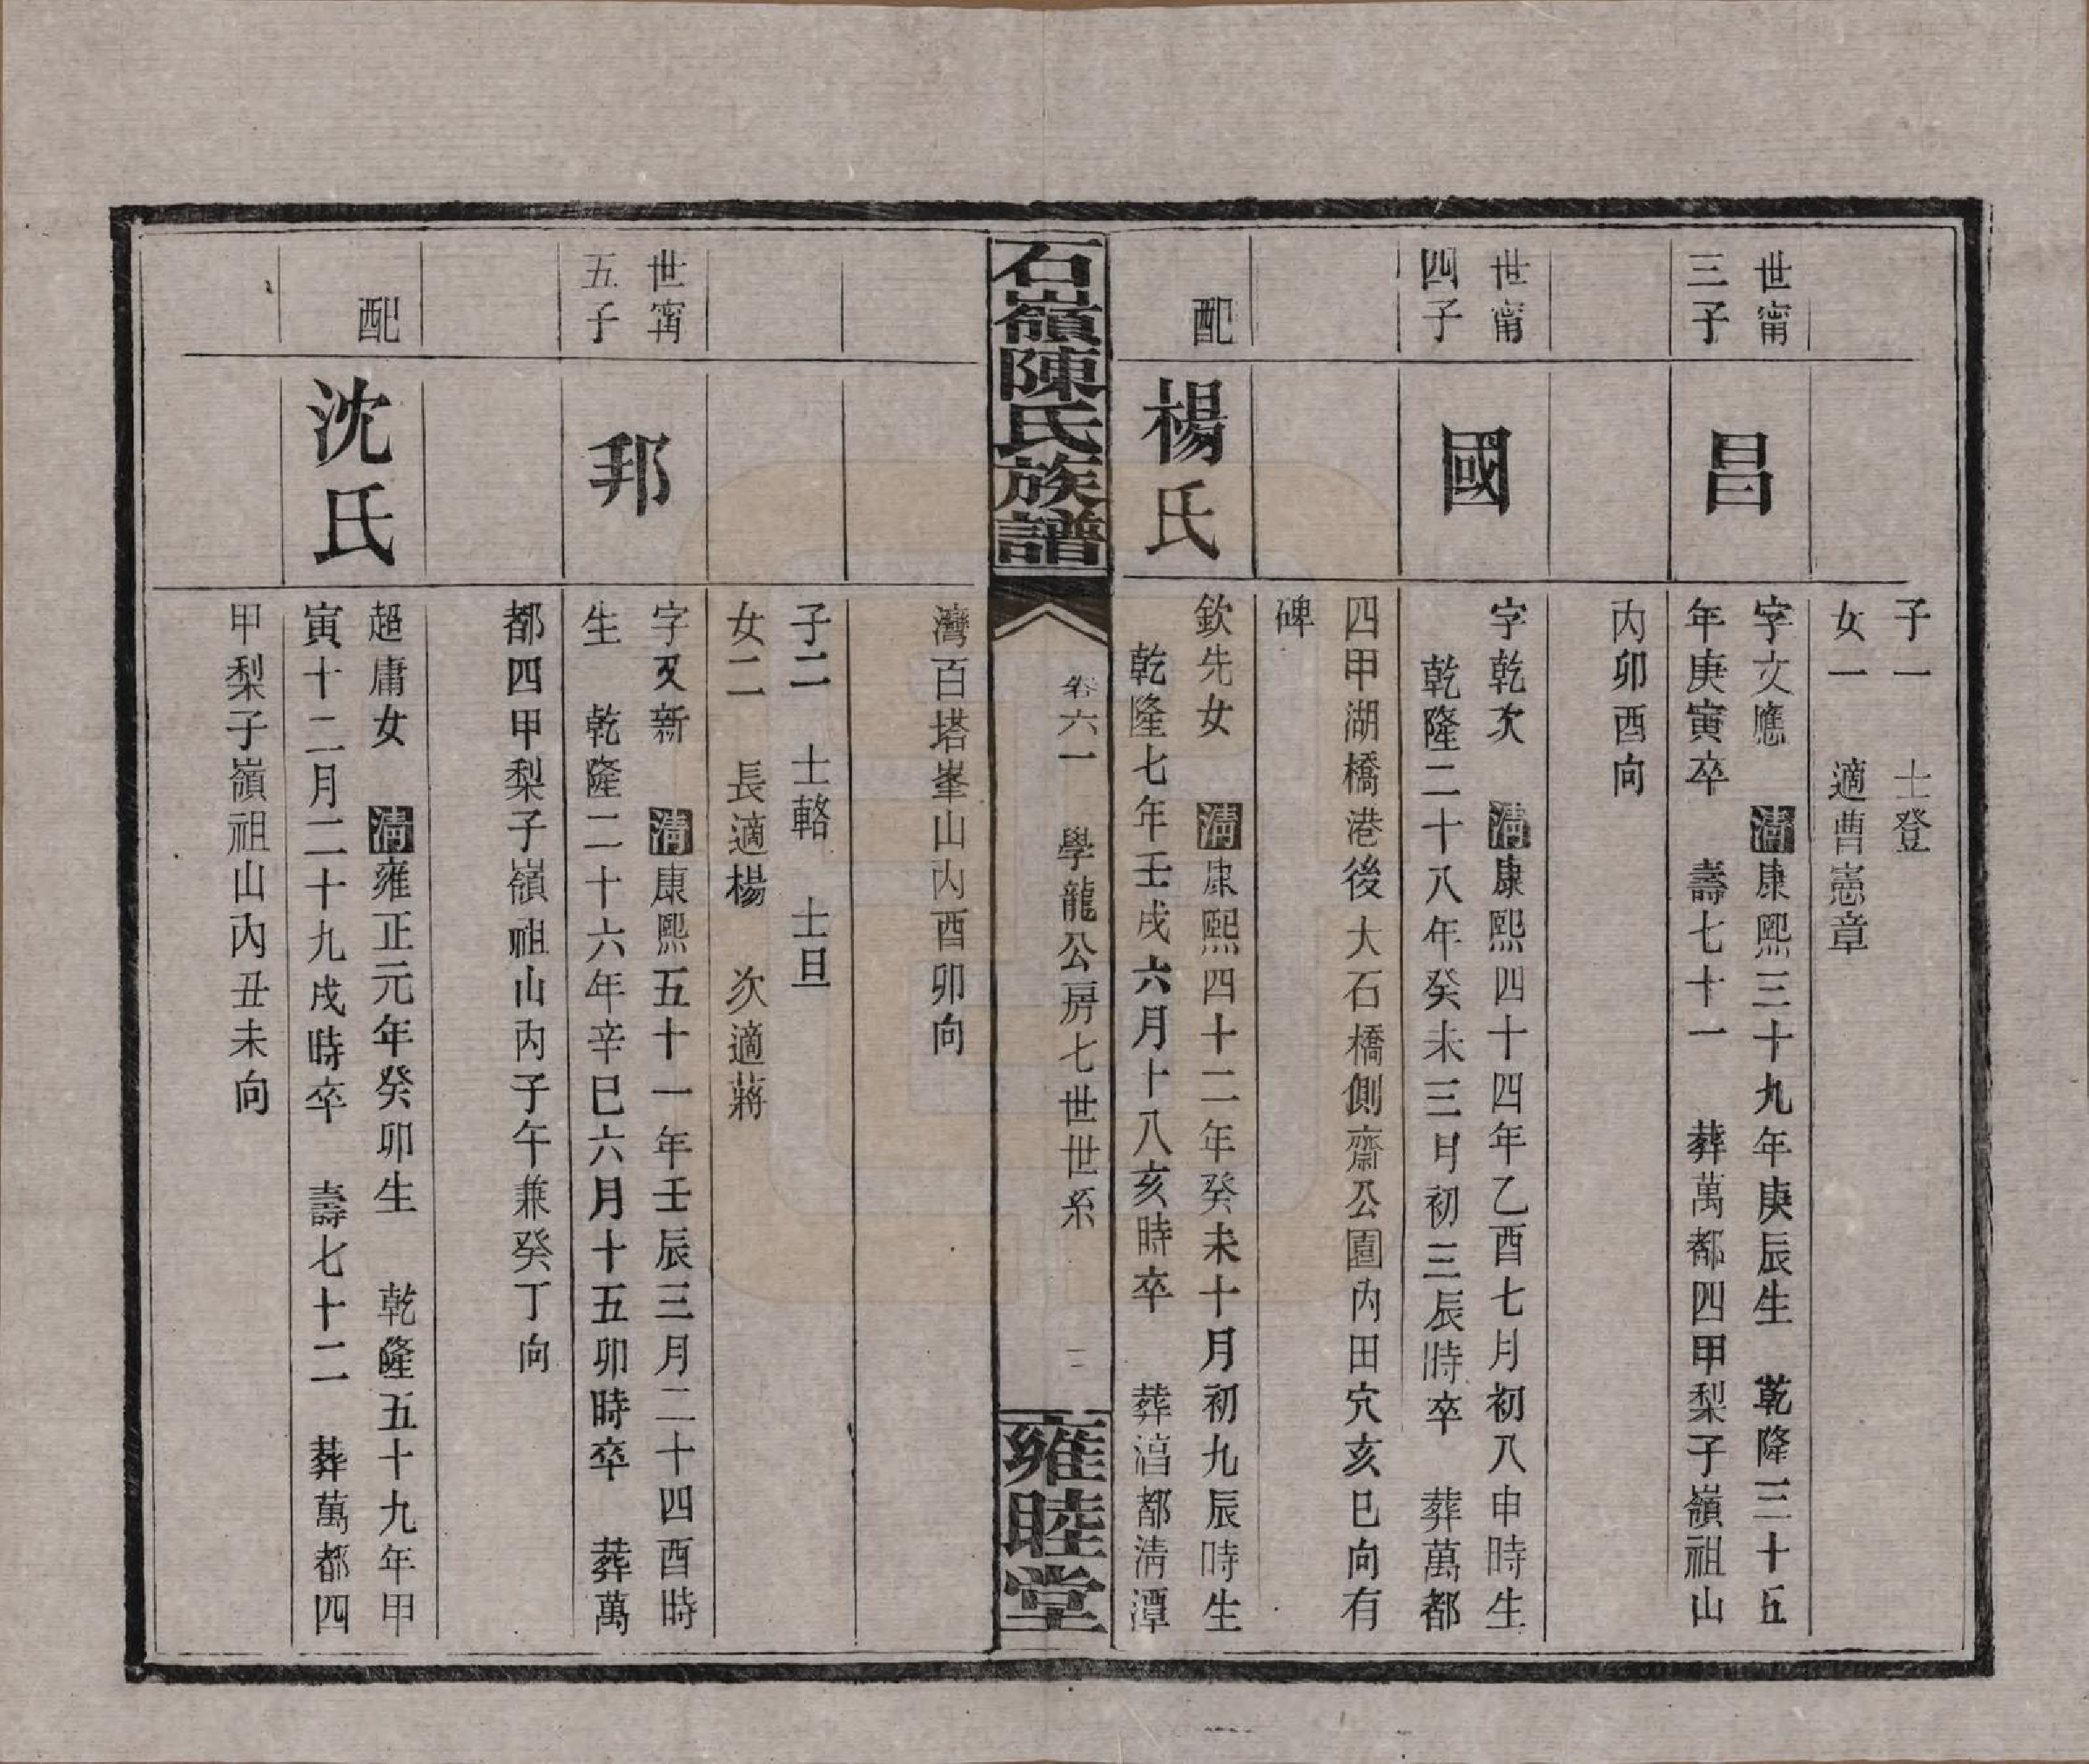 子一　士登
女一　適曹憲章
世甯
三子
昌
字文應　清康熙三十九年庚辰生　乾隆三十五
年庚寅卒　壽七十一　葬萬都四甲梨子嶺祖山
内卯酉向
世甯
四子
國
字乾次　清康熙四十四年乙酉七月初八申時生
乾隆二十八年癸未三月初三辰時卒　葬萬都
四甲湖橋港後大石橋側齋公園内田穴亥巳向有
碑
配
楊氏
欽先女　清康熙四十二年癸未十月初九辰時生
乾隆七年壬戌六月十八亥時卒　葬湻都淸潭
石嶺陳氏族譜
卷六一　學龍公房七世世系
二
雍睦堂
灣百塔峯山内酉卯向
子二　士輅　士旦
女二　長適楊　次適蔣
世甯
五子
邦
字又新　清康熙五十一年壬辰三月二十四酉時
生　乾隆二十六年辛巳六月十五卯時卒　葬萬
都四甲梨子嶺祖山内子午兼癸丁向
配
沈氏
超庸女　清雍正元年癸卯生　乾隆五十九年甲
寅十二月二十九戌時卒　壽七十二　葬萬都四
甲梨子嶺祖山内丑未向